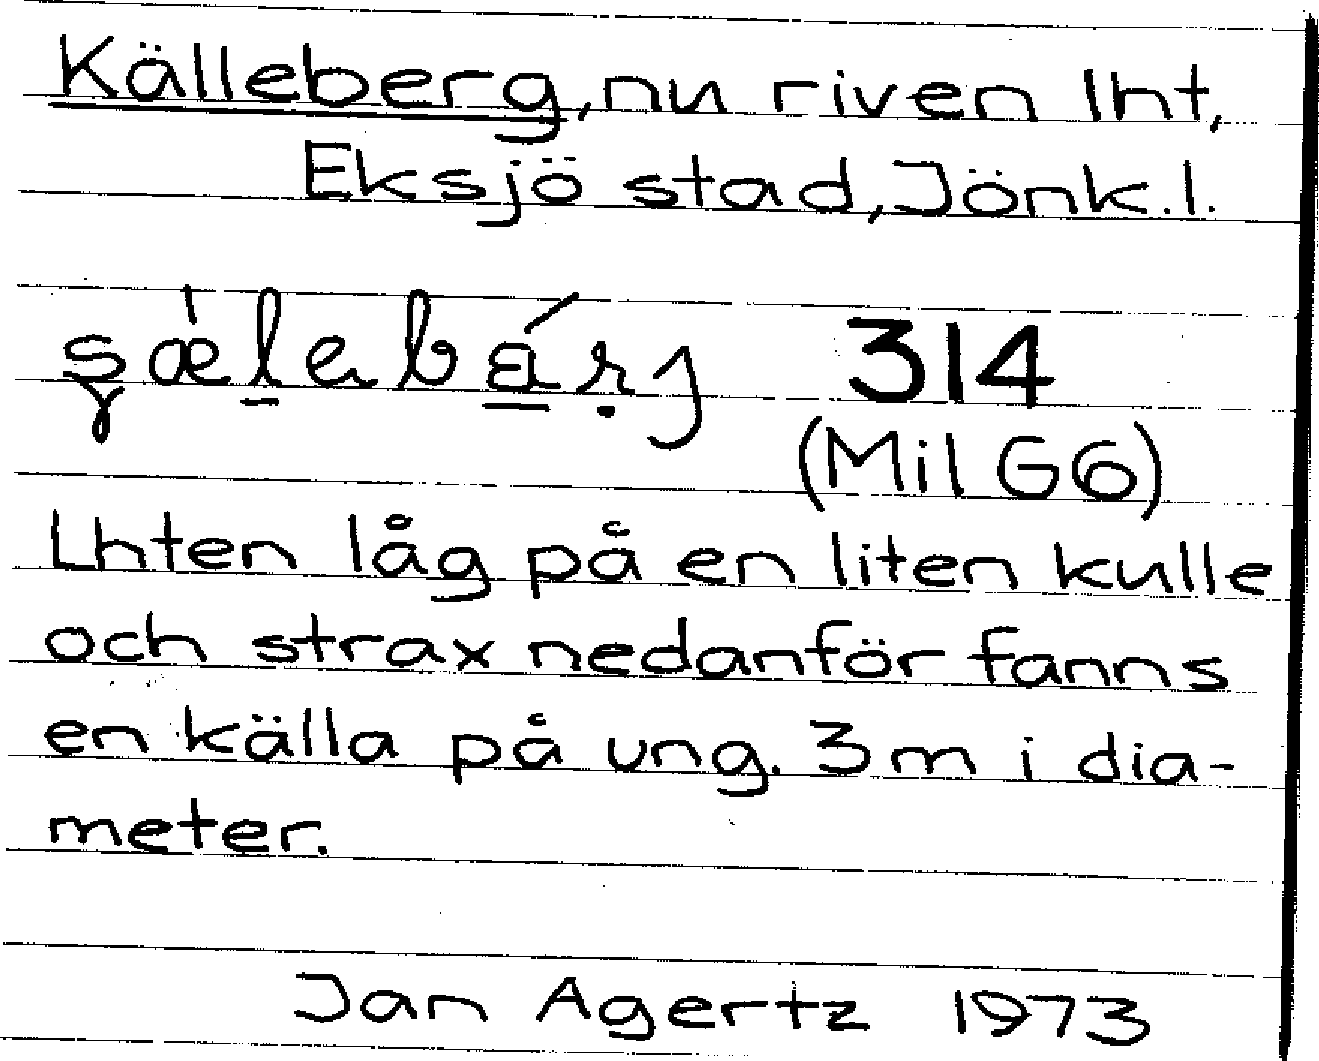 Källeberg, nu riven lht,
Eksjö stad, Jönk. l.
314
(Mil G6)
Lhten låg på en liten kulle
och strax nedanför fanns
en källa på ung. 3 m i dia-
meter.
Jan Agertz 1973